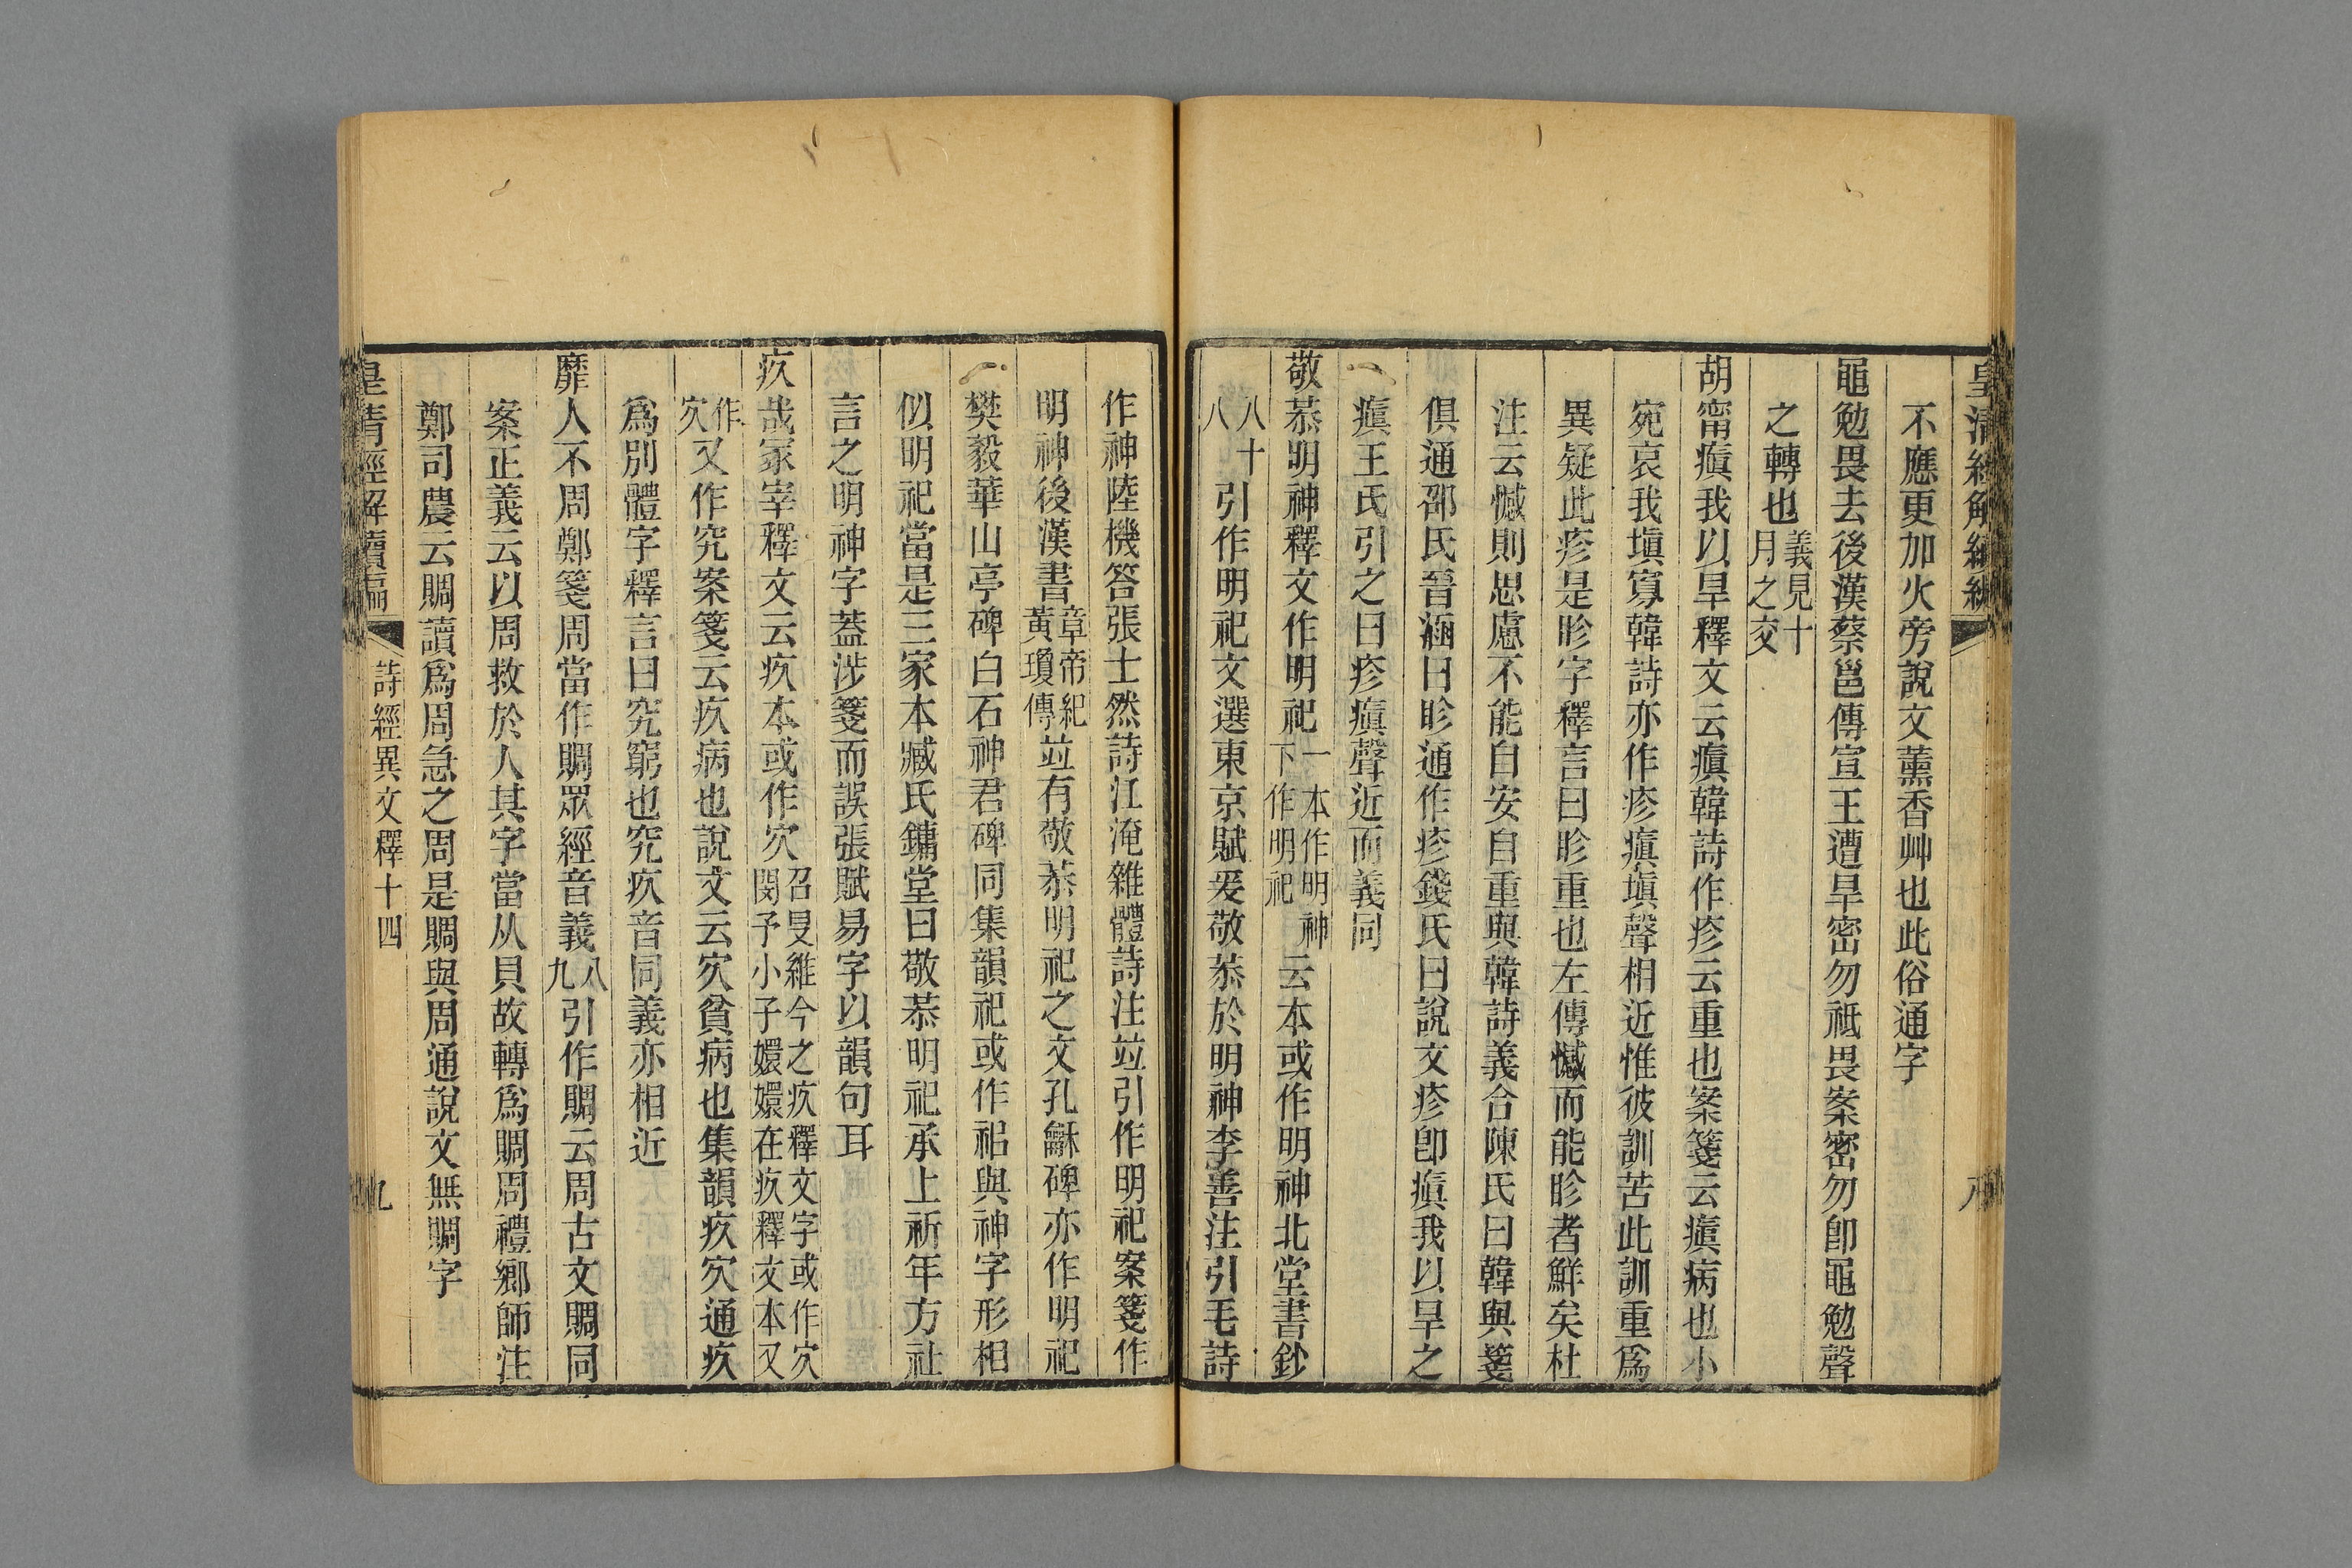 皇清經解續編
八
不應更加火旁說文薰香艸也此俗通字
黽勉畏去後漢蔡邕傳宣王遭旱密勿祗畏案密勿卽黽勉聲
之轉也義見十月之交
胡甯瘨我以旱釋文云瘨韓詩作疹云重也案箋云瘨病也小
宛哀我塡寡韓詩亦作疹瘨塡聲相近惟彼訓苦此訓重爲
異疑此疹是眕字釋言曰眕重也左傳憾而能眕者鮮矣杜
注云憾則思慮不能自安自重與韓詩義合陳氏曰韓與箋
俱通邵氏晉涵曰眕通作疹錢氏曰說文疹卽瘨我以旱之
瘨王氏引之曰疹瘨聲近而義同
敬恭明神釋文作明祀一本作明神下作明祀云本或作明神北堂書鈔
八十八引作明祀文選東京賦爰敬恭於明神李善注引毛詩
作神陸機答張士然詩江淹雜體詩注竝引作明祀案箋作
明神後漢書章帝紀黃瓊傳竝有敬恭明祀之文孔龢碑亦作明祀
樊毅華山亭碑白石神君碑同集韻祀或作䄫與神字形相
似明祀當是三家本臧氏鏞堂曰敬恭明祀承上祈年方社
言之明神字蓋涉箋而誤張賦易字以韻句耳
疚哉冢宰釋文云疚本或作㝌召旻維今之疚釋文字或作㝌閔予小子嬛嬛在疚釋文本又
作㝌又作究案箋云疚病也說文云㝌貧病也集韻疚㝌通疚
爲別體字釋言曰究窮也究疚音同義亦相近
靡人不周鄭箋周當作賙眾經音義八九引作賙云周古文賙同
案正義云以周救於人其字當从貝故轉爲賙周禮鄉師注
鄭司農云賙讀爲周急之周是賙與周通說文無賙字
皇清經解續編
詩經異文釋十四
九